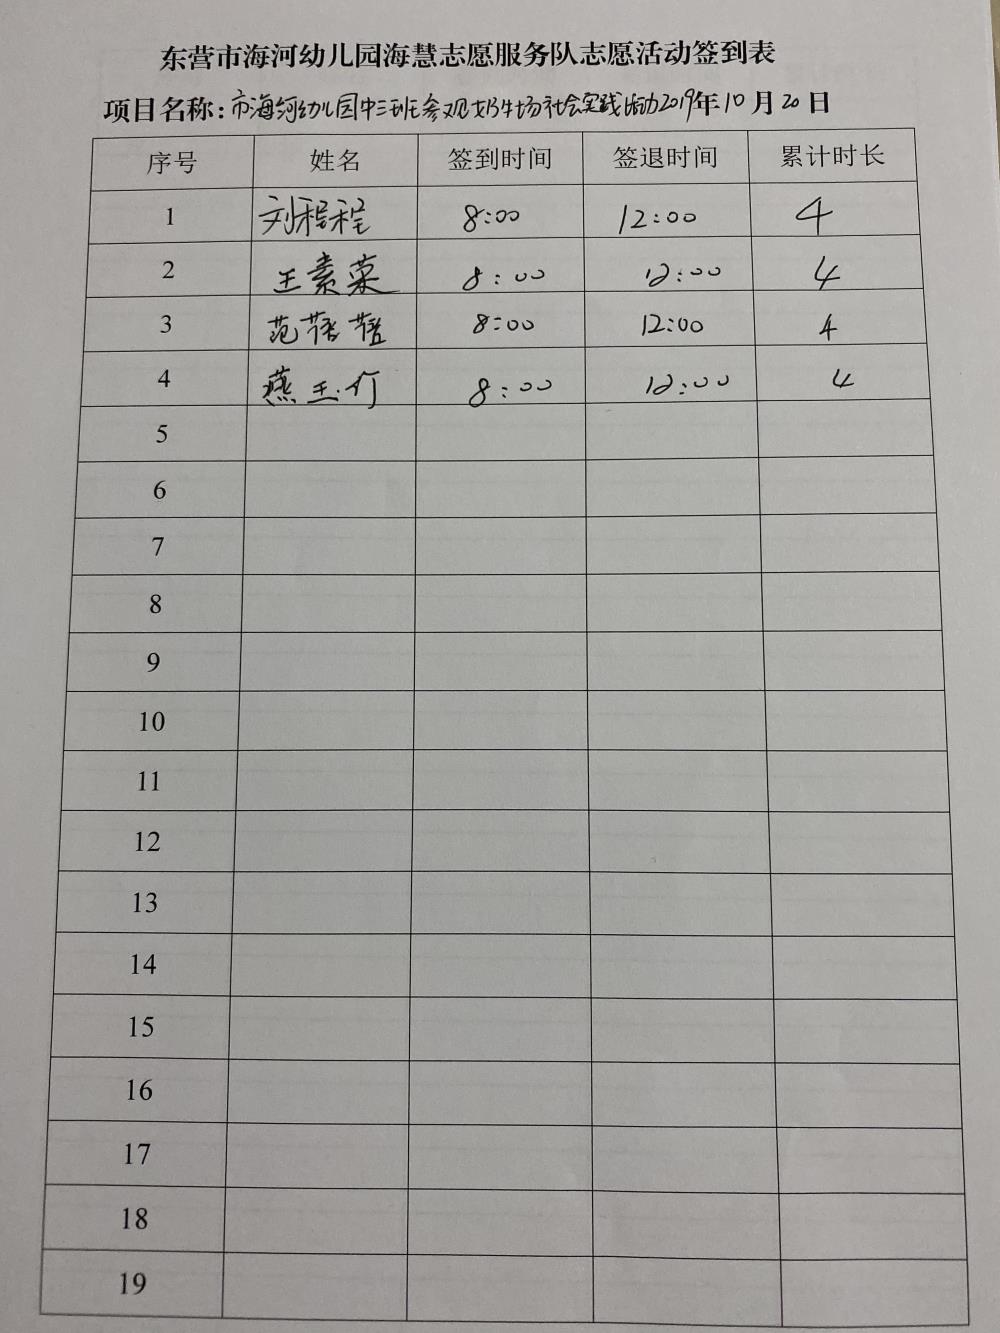 东营市海河幼儿园海慧志愿服务队志愿活动签到表
项目名称:市海河幼儿园中三班参观奶牛场社会实践活动2019年10月20日
序号 姓名 签到时间 签退时间 累计时长
1 刘程程 8:00 12:00 4
2 王素菜 8:00 12:00 4
3 范蓓蓓 8:00 12:00 4
4 燕玉灯 8:00 12:00 4
5
6
7
8
9
10
11
12
13
14
15
16
17
18
19